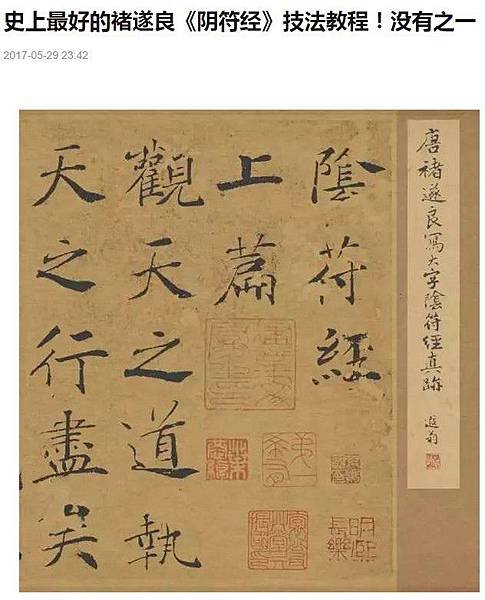 史上最好的褚遂良《阴符经》技法教程！没有之一
2017-05-29 23:42
唐褚遂良写大字陰符經真跡
陰符經
上萹
觀天之道執
天之行盡矣